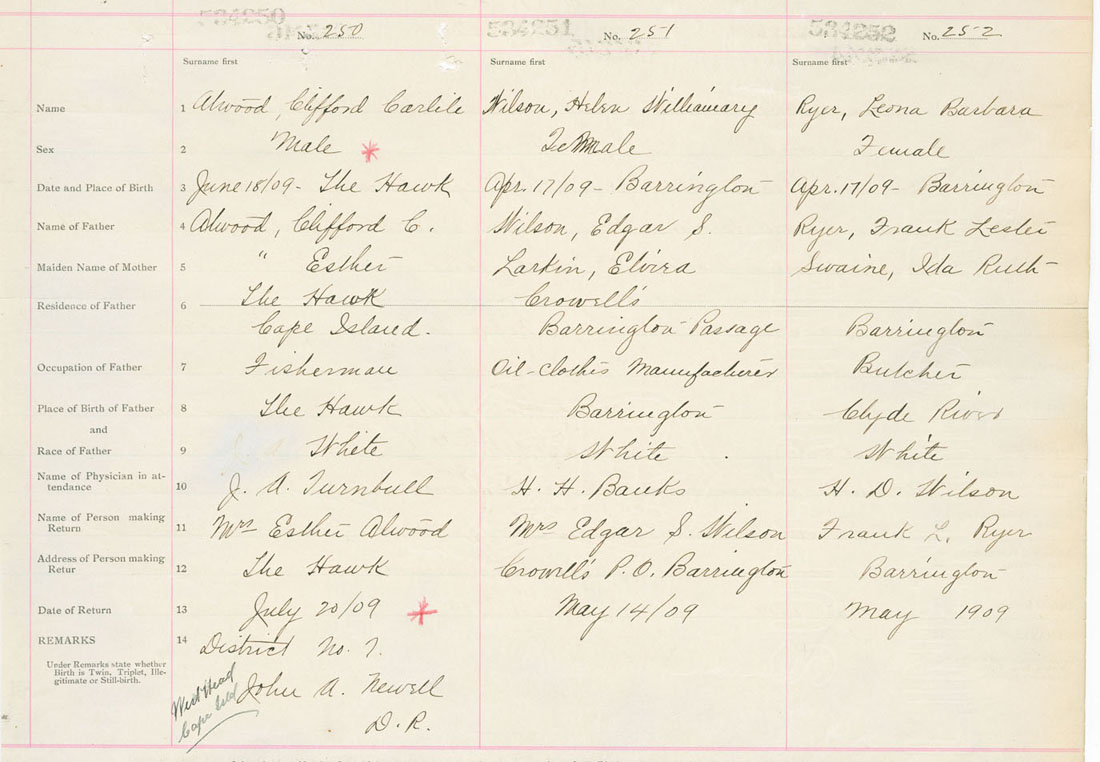 534250 534251 534252
No. 250 No. 251 No. 252
Surname first Surname first Surname first
Name 1 Atwood, Clifford Carlile Wilson, Helen Williamary Ryer, Leona Barbara
Sex 2 Male * Female Female
Date and Place of Birth 3 June 18/09 - The Hawk Apr. 17/09 - Barrington Apr. 17/09 - Barrington
Name of Father 4 Atwood, Clifford C. Wilson, Edgar S. Ryer, Frank Lester
Maiden Name of Mother 5 " Esther Larkin, Elvira Swaine, Ida Ruth
Residence of Father 6 The Hawk Crowell's
Cape Island. Barrington Passage Barrington
Occupation of Father 7 Fisherman Oil-clothes Manufacturer Butcher
Place of Birth of Father 8 The Hawk Barrington Clyde River
and
Race of Father 9 White White White
Name of Physician in at-
tendance 10 J. A. Turnbull H. H. Banks H. D. Wilson
Name of Person making
Return 11 Mrs Esther Atwood Mrs Edgar S. Wilson Frank L. Ryer
Address of Person making
Retur 12 The Hawk Crowell's P.O. Barrington Barrington
Date of Return 13 July 20/09 * May 14/09 May 1909
REMARKS 14 District No. 7.
Under Remarks state whether
Birth is Twin, Triplet, Ille-
gitimate or Still-birth.
John A. Newell
D.R.
West Head
Cape Isld